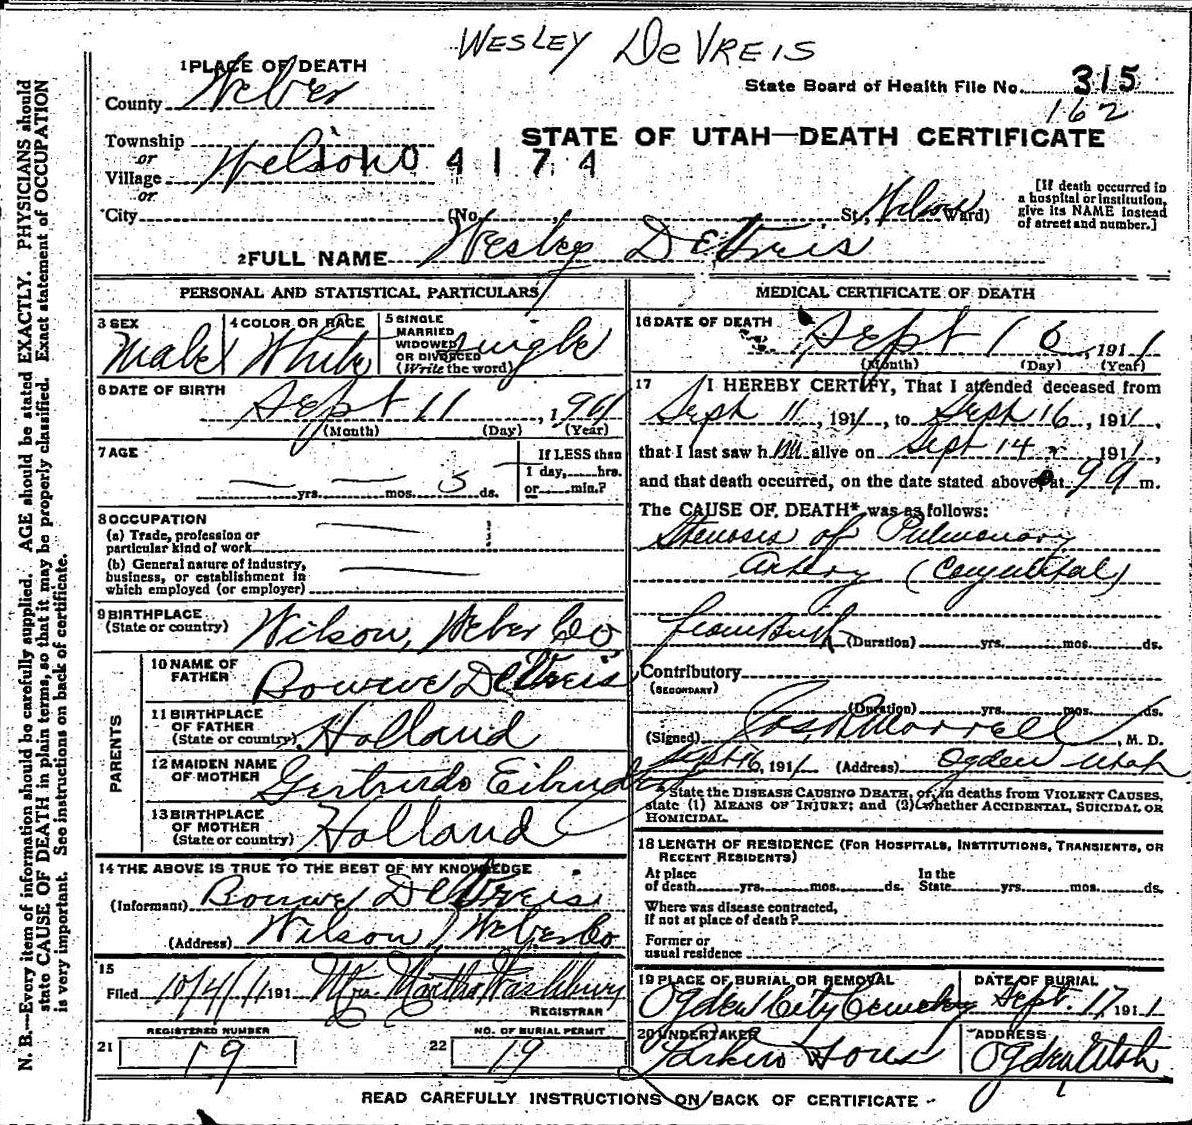 WESLEY DeVREIS
1 PLACE OF DEATH
County Weber
State Board of Health File No. 315
162
Township
or
Village Wilson 0 4 1 7 4
or
STATE OF UTAH—DEATH CERTIFICATE
City (No. St., Wilson Ward)
[If death occurred in
a hospital or institution,
give its NAME instead
of street and number.]
2 FULL NAME Wesley DeVreis
PERSONAL AND STATISTICAL PARTICULARS
3 SEX
Male
4 COLOR OR RACE
White
5 SINGLE
MARRIED
WIDOWED
OR DIVORCED
(Write the word)
Single
6 DATE OF BIRTH
Sept 11, 1911
(Month) (Day) (Year)
7 AGE
— yrs. — mos. 5 ds.
If LESS than
1 day, hrs.
or min.?
8 OCCUPATION
(a) Trade, profession or
particular kind of work
(b) General nature of industry,
business, or establishment in
which employed (or employer)
9 BIRTHPLACE
(State or country) Wilson, Weber Co
PARENTS
10 NAME OF
FATHER Bouwe DeVreis
11 BIRTHPLACE
OF FATHER
(State or country) Holland
12 MAIDEN NAME
OF MOTHER Gertrude
13 BIRTHPLACE
OF MOTHER
(State or country) Holland
14 THE ABOVE IS TRUE TO THE BEST OF MY KNOWLEDGE
(Informant) Bouwe DeVreis
(Address) Wilson, Weber Co
15
Filed 10/4/11 191 Mrs. Martha Washburn
REGISTRAR
REGISTERED NUMBER
21 19
NO. OF BURIAL PERMIT
22 19
MEDICAL CERTIFICATE OF DEATH
16 DATE OF DEATH
Sept 16, 1911
(Month) (Day) (Year)
17 I HEREBY CERTIFY, That I attended deceased from
Sept 11, 1911, to Sept 16, 1911,
that I last saw h m alive on Sept 14, 1911,
and that death occurred, on the date stated above, at 9 a m.
The CAUSE OF DEATH* was as follows:
Stenosis of Pulmonary
Artery (Congenital)
from Birth (Duration) yrs. mos. ds.
Contributory
(SECONDARY)
(Duration) yrs. mos. ds.
(Signed) Jos R Morrell, M. D.
Sept 16, 1911 (Address) Ogden Utah
*State the DISEASE CAUSING DEATH, or, in deaths from VIOLENT CAUSES,
state (1) MEANS OF INJURY; and (2) whether ACCIDENTAL, SUICIDAL OR
HOMICIDAL.
18 LENGTH OF RESIDENCE (FOR HOSPITALS, INSTITUTIONS, TRANSIENTS, OR
RECENT RESIDENTS)
At place
of death yrs. mos. ds.
In the
State yrs. mos. ds.
Where was disease contracted,
if not at place of death?
Former or
usual residence
19 PLACE OF BURIAL OR REMOVAL
Ogden City Cemetery
DATE OF BURIAL
Sept. 17, 1911
20 UNDERTAKER
Larkin Sons
ADDRESS
Ogden Utah
READ CAREFULLY INSTRUCTIONS ON BACK OF CERTIFICATE
N. B.—Every item of information should be carefully supplied. AGE should be stated EXACTLY. PHYSICIANS should
state CAUSE OF DEATH in plain terms, so that it may be properly classified. Exact statement of OCCUPATION
is very important. See instructions on back of certificate.